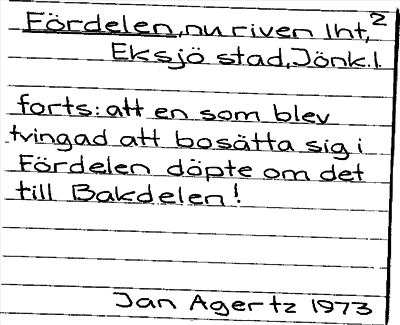 Fördelen, nu riven lht, 2
Eksjö stad, Jönk.l.
forts: att en som blev
tvingad att bosätta sig i
Fördelen döpte om det
till Bakdelen!
Jan Agertz 1973